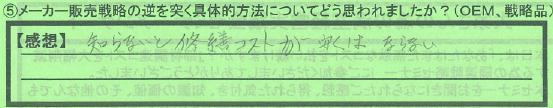 ⑤メーカー販売戦略の逆を突く具体的方法についてどう思われましたか？(OEM、戦略品)
【感想】 知らないと修繕コストが安くはならない